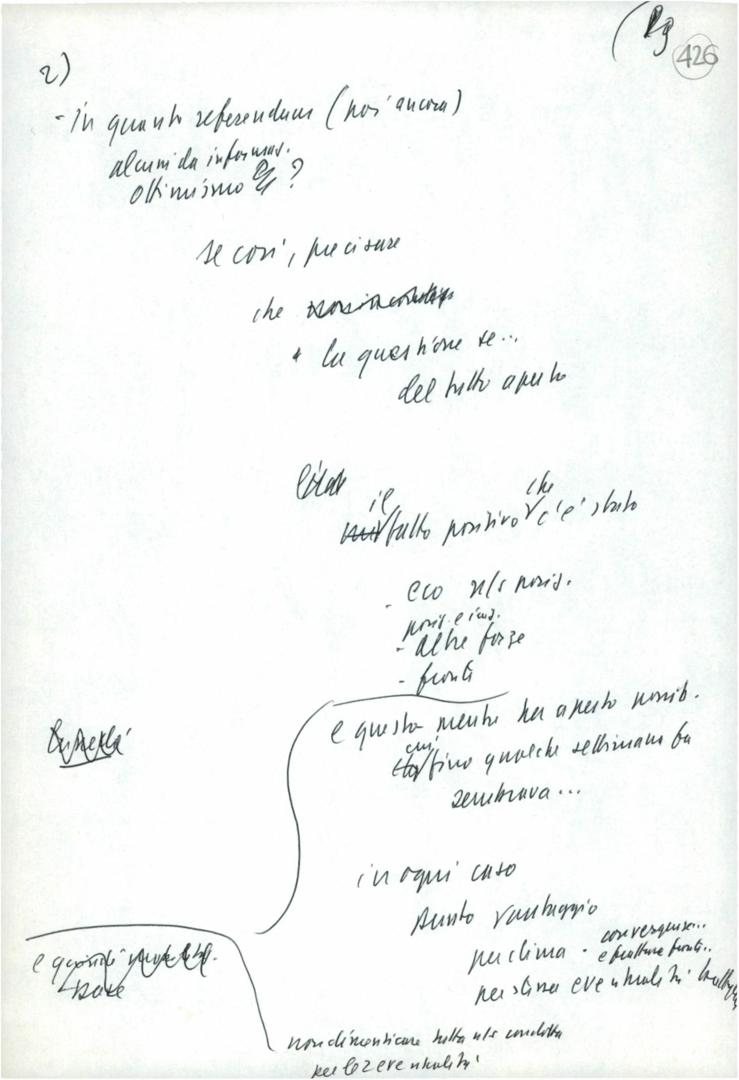 (Pg
426
2)
- in quanto referendum (poi ancora)
alcuni da informaz.
ottimismo ?
se così, precisare
che
la questione se...
del tutto aperto
il che
fatto positivo c'è stato
- eco n/s posiz.
posiz. e iniz.
- altre forze
- fronti
e questo mentre ha aperto possib.
cui
fino qualche settimana fa
sembrava...
in ogni caso
punto vantaggio
per clima - convergenze..
e fratture fronti..
per stessa eventualità
e quindi
base
non dimenticare tutta n/s condotta
per le 2 eventualità